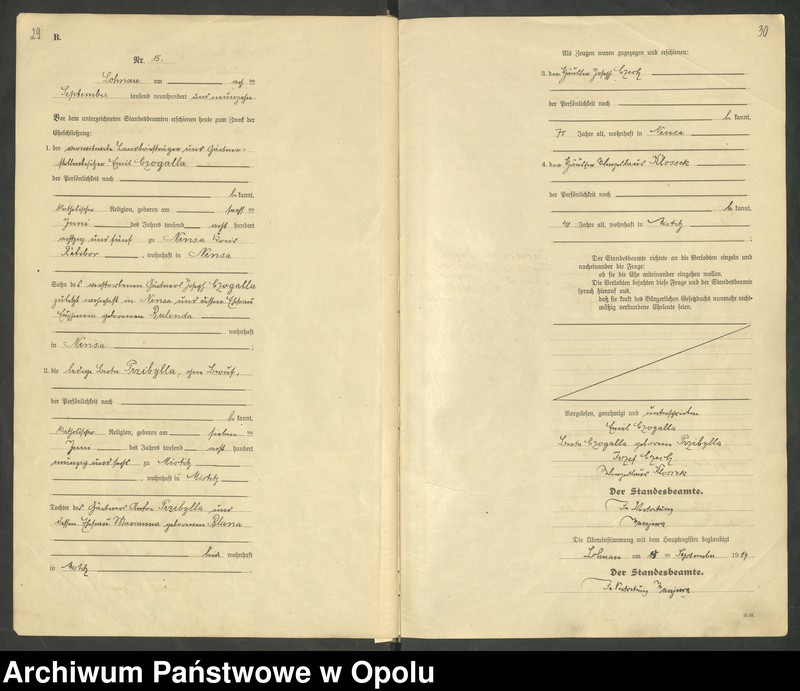 29
B.
Nr. 15.
Lohnau am acht ten
September tausend neunhundert und neunzehn
Vor dem unterzeichneten Standesbeamten erschienen heute zum Zweck der
Eheschließung:
1. der verwitwete Landbriefträger und Gärtner-
stellenbesitzer Emil Czogalla
der Persönlichkeit nach
be kannt,
katholischer Religion, geboren am sechs ten
Juni des Jahres tausend acht hundert
achtzig und fünf zu Nensa Kreis
Ratibor, wohnhaft in Nensa
Sohn des verstorbenen Gärtners Josef Czogalla
zuletzt wohnhaft in Nensa und dessen Ehefrau
geborenen
wohnhaft
in Nensa;
2. die ledige Berta Przibylla, ohne Beruf,
der Persönlichkeit nach
be kannt,
katholischer Religion, geboren am sieben ten
Juni des Jahres tausend acht hundert
neunzig und sechs zu
, wohnhaft in
Tochter des Gärtners Anton Przibylla und
dessen Ehefrau Marianna geborenen
beide wohnhaft
in
30
Als Zeugen waren zugezogen und erschienen:
3. der Häusler Josef Czech
der Persönlichkeit nach
be kannt,
Jahre alt, wohnhaft in Nensa
4. der Häusler Klossek
der Persönlichkeit nach
be kannt,
Jahre alt, wohnhaft in
Der Standesbeamte richtete an die Verlobten einzeln und
nacheinander die Frage:
ob sie die Ehe miteinander eingehen wollen.
Die Verlobten bejahten diese Frage und der Standesbeamte
sprach hierauf aus,
daß sie kraft des Bürgerlichen Gesetzbuchs nunmehr recht-
mäßig verbundene Eheleute seien.
Vorgelesen, genehmigt und unterschrieben
Emil Czogalla
Berta Czogalla geborene Przibylla
Josef Czech
Klossek
Der Standesbeamte.
In Vertretung
Die Übereinstimmung mit dem Hauptregister beglaubigt
Lohnau am ten September 1919.
Der Standesbeamte.
In Vertretung
Archiwum Państwowe w Opolu